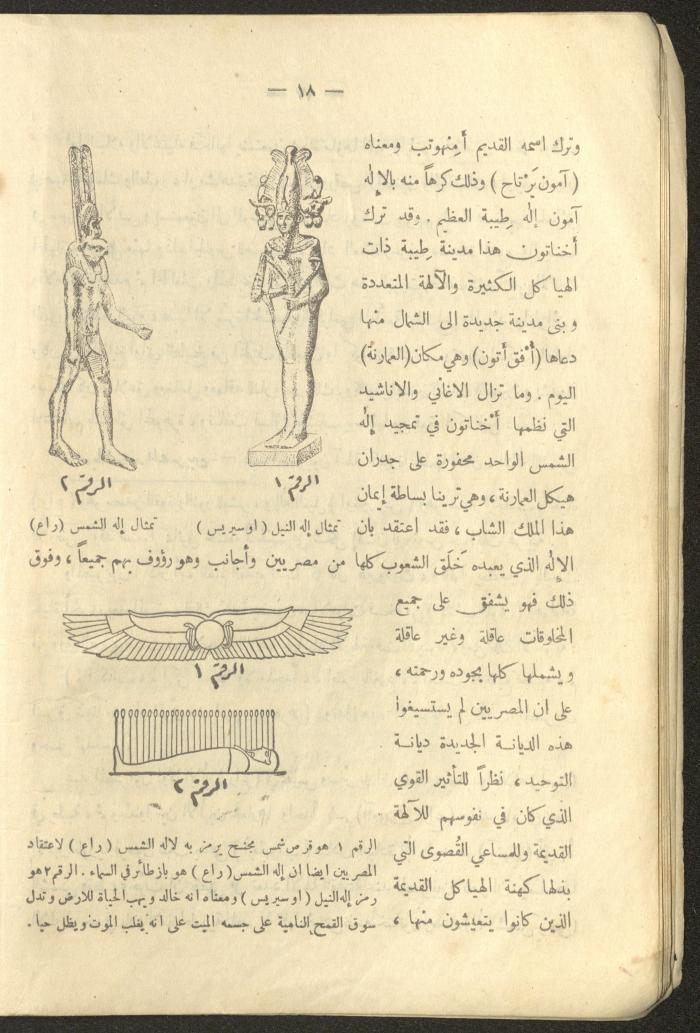 — ١٨ —
وترك اسمه القديم أَمِنْهوتب ومعناه
(آمون يَرْتاح) وذلك كرهاً منه بالإله
آمون إله طِيبة العظيم. وقد ترك
أخناتون هذا مدينة طِيبة ذات
الهياكل الكثيرة والآلهة المتعددة
وبنى مدينة جديدة الى الشمال منها
دعاها (أُفق أتون) وهي مكان (العمارنة)
اليوم. وما تزال الاغاني والاناشيد
التي نظمها أخناتون في تمجيد إله
الشمس الواحد محفورة على جدران
هيكل العمارنة، وهي ترينا بساطة إيمان
هذا الملك الشاب، فقد اعتقد بان
الرقم ١
الرقم ٢
تمثال إله النيل (اوسيريس)
تمثال إله الشمس (راع)
الإله الذي يعبده خَلَق الشعوب كلها من مصريين وأجانب وهو رؤوف بهم جميعاً، وفوق
ذلك فهو يشفق على جميع
المخلوقات عاقلة وغير عاقلة
ويشملها كلها بجوده ورحمته،
على ان المصريين لم يستسيغوا
هذه الديانة الجديدة ديانة
التوحيد، نظراً للتأثير القوي
الذي كان في نفوسهم للآلهة
القديمة وللمساعي القُصوى التي
بذلها كهنة الهياكل القديمة
الذين كانوا يتعيشون منها،
الرقم ١
الرقم ٢
الرقم ١ هو قرص شمس مجنح يرمز به لاله الشمس (راع) لاعتقاد
المصريين ايضا ان إله الشمس (راع) هو باز طائر في السماء. الرقم ٢ هو
رمز إله النيل (اوسيريس) ومعناه انه خالد ويهب الحياة للارض وتدل
سوق القمح النامية على جسمه الميت على انه يغلب الموت ويظل حيا.